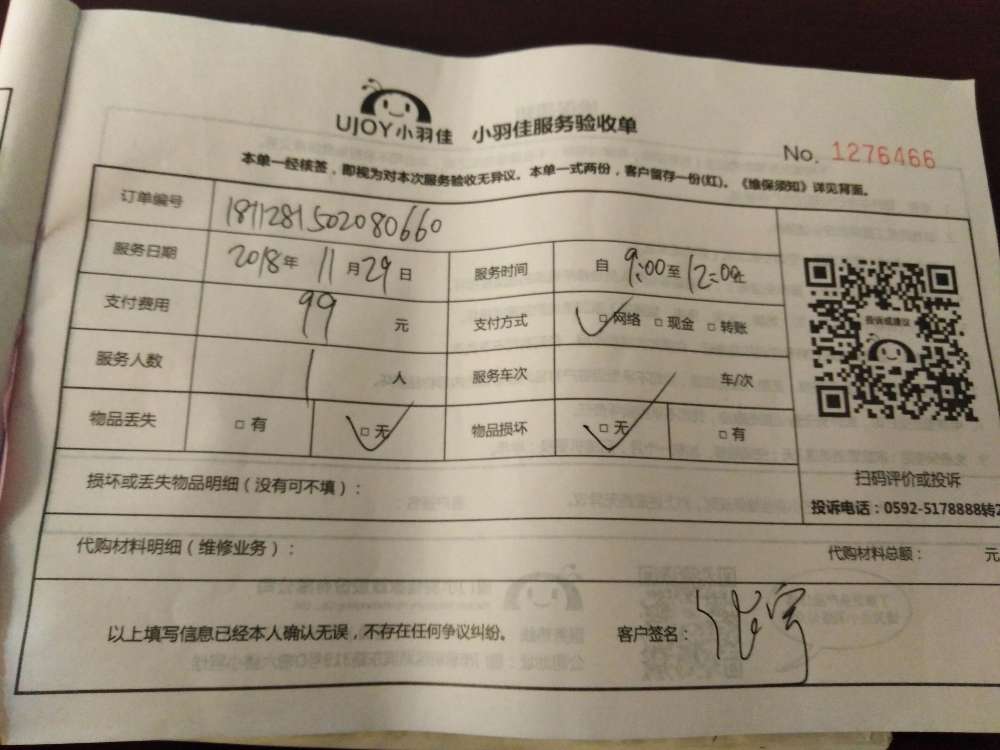 UJOY小羽佳 小羽佳服务验收单
No. 1276466
本单一经核签，即视为对本次服务验收无异议。本单一式两份，客户留存一份(红)。《维保须知》详见背面。
订单编号 1811281502080660
服务日期 2018年 11月29日 服务时间 自 9:00至12:00止
支付费用 99 元 支付方式 □网络 □现金 □转账
投诉或建议
服务人数 1 人 服务车次 车/次
物品丢失 □有 □无 物品损坏 □无 □有
扫码评价或投诉
损坏或丢失物品明细（没有可不填）：
投诉电话：0592-5178888转2
代购材料明细（维修业务）： 代购材料总额： 元
以上填写信息已经本人确认无误，不存在任何争议纠纷。 客户签名：